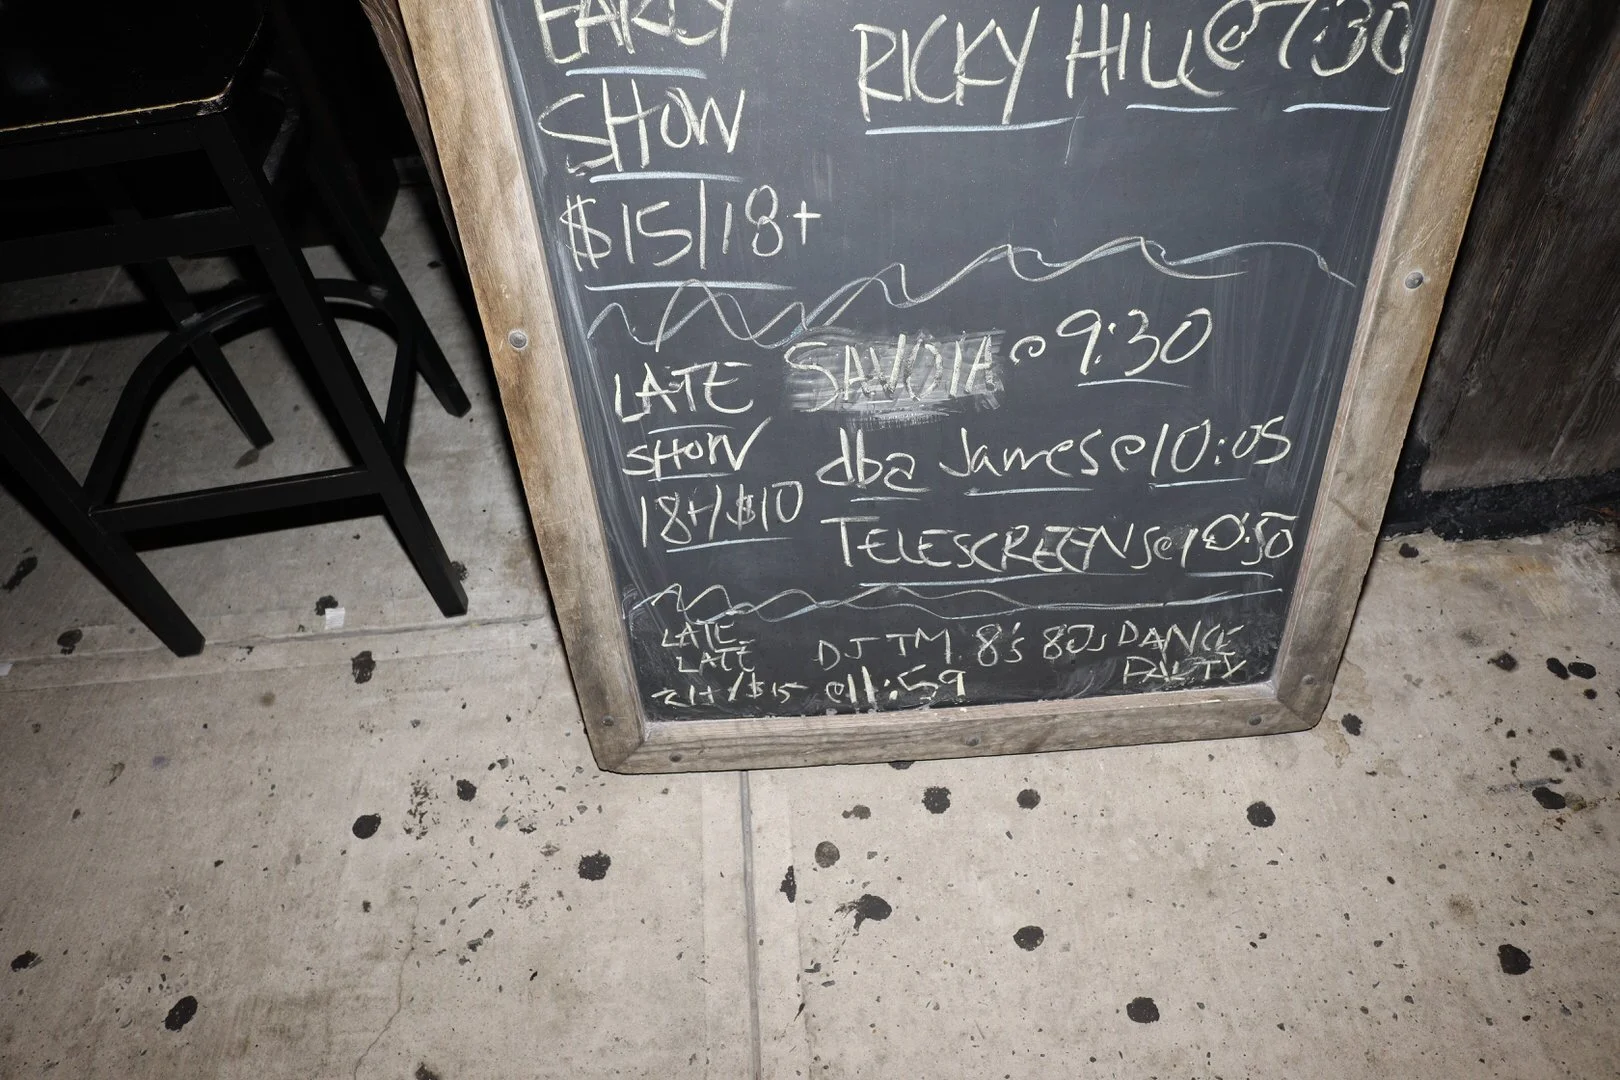 EARLY
SHOW
$15/18+
RICKY HILL @ 7:30
LATE
SHOW
18+/$10
SAVOIA @ 9:30
dba James @ 10:05
TELESCREENS @ 10:50
LATE
LATE
21+/$15
DJ TM 8's 80s DANCE
PARTY
@11:59